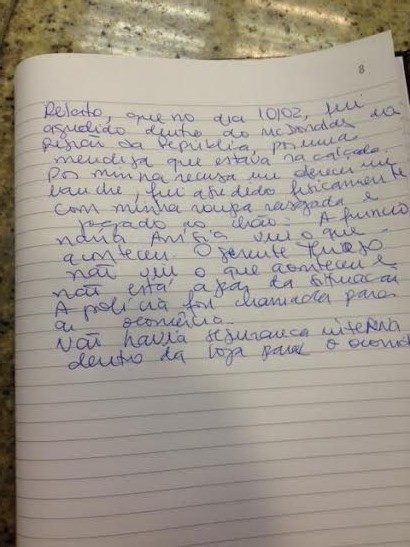 8
Relato, que no dia 10/02, fui
agredido dentro do McDonalds na
Região da República, por uma
mendiga que estava na calçada.
Por minha recusa em oferecer um
lanche, fui agredido fisicamente
com minha roupa rasgada e
jogado ao chão. A funcio
nária viu o que
aconteceu. O gerente
não viu o que aconteceu e
não está a par da situação
A polícia foi chamada para
a ocorrência.
Não havia segurança interna
dentro da loja para o ocorrido